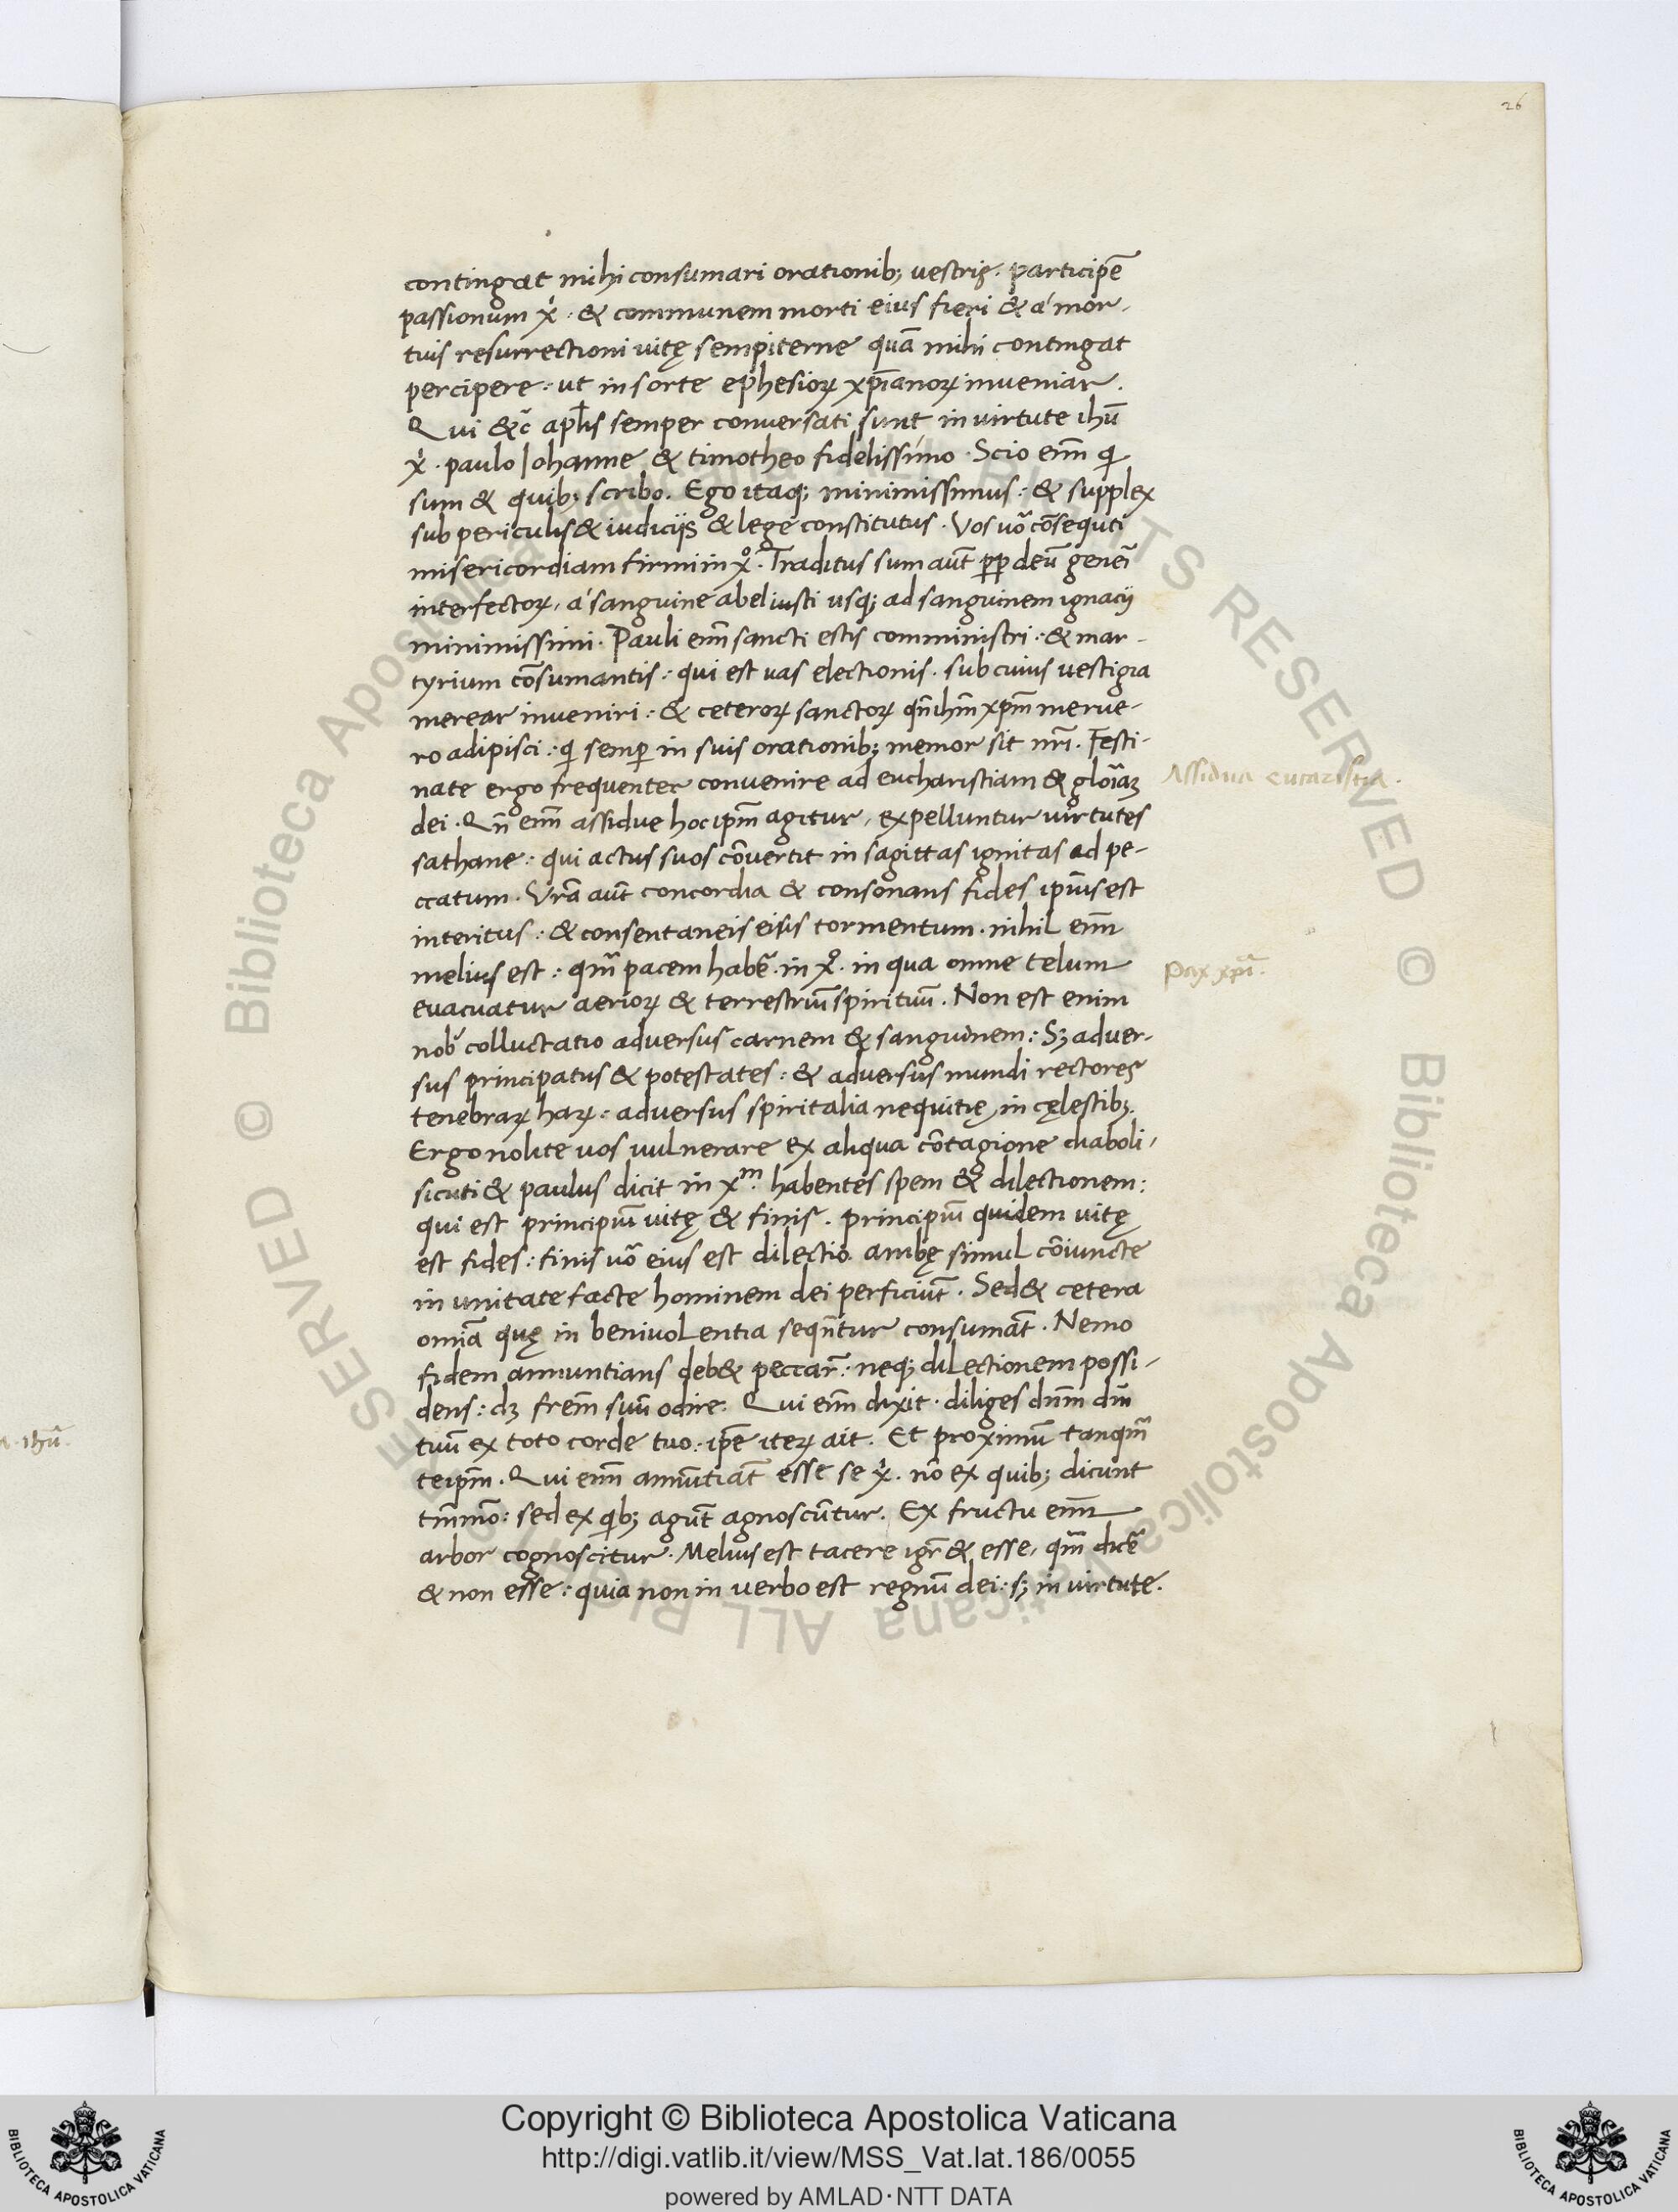 26
contingat mihi consumari orationib; uestris. participē
passionum x̓. & communem morti eius fieri & á mor-
tuis resurrectioni uitę sempiterne quā mihi contingat
percipere: ut in sorte ephesioꝝ xp̄ianoꝝ inueniar.
Qui &c̄ apl̄is semper conuersati sunt in virtute ihū
x̓. paulo Iohanne & timotheo fidelissimo. Scio enī qi
sum & quib; scribo. Ego itaq; minimissimus: & supplex
sub periculis & iudicijs & lege constitutus. Vos uo᷒ cōsequti
misericordiam firmi in x̊. Traditus sum aūt ꝓp deū geneī
interfectoꝝ, á sanguine abel iusti usq; ad sanguinem ignacij
minimissimi. Pauli enī sancti estis comministri: & mar-
tyrium cōsumantis: qui est uas electionis. sub cuius uestigia
merear inueniri: & ceteroꝝ sanctoꝝ qn̄ ihm̄ xpm̄ merue-
ro adipisci: qi semp̄ in suis orationib; memor sit nr̄i. Festi-
nate ergo frequenter convenire ad eucharistiam & glōiaȝ
Assidua eucaristia.
dei. Qn̄ enī assidue hoc ipm̄ agitur, expelluntur virtutes
sathane: qui actus suos cōuertit in sagittas ignitas ad pe-
ccatum. Vrā aūt concordia & consonans fides ipīus est
interitus: & consentaneis eiūs tormentum. nihil enī
melius est: qm̄ pacem habē. in x̊. in qua omne telum
Pax xpī.
euacuatur aerioꝝ & terrestriū spirituū. Non est enim
nob̄ colluctatio aduersus carnem & sanguinem: Sȝ aduer-
sus principatus & potestates: & aduersus mundi rectores
tenebraꝝ haꝝ: aduersus spiritalia nequitię, in cęlestib;.
Ergo nolite uos uulnerare ex aliqua cōtagione diaboli,
sicuti & paulus dicit in xᵐ. habentes spem & dilectionem:
qui est principiū uitę & finis. principiū quidem uitę
est fides: finis uo᷒ eius est dilectio. ambę simul cōiuncte
in unitate facte hominem dei perficiūt. Sed & cetera
omīa quę in beniuolentia sequn̄tur consumāt. Nemo
fidem annuntians deb& peccar̄: neq; dilectionem possi-
dens: dȝ frēm suū odire. Qui enī dixit. diliges dnm̄ dm̄
tuū ex toto corde tuo: ip̄e iteꝝ ait. Et proximū tanqm̄
a. ihū.
teipm̄. Qui enī annūtiāt esse se x̓. nō ex quib; dicunt
tm̄mō: sed ex qib; agūt agnoscūtur. Ex fructu enī
arbor cognoscitur. Melius est tacere igr̄ & esse, qm̄ dicē
& non esse: quia non in verbo est regnū dei: sȝ in virtute.
© Biblioteca Apostolica Vaticana ALL RIGHTS RESERVED © Biblioteca Apostolica Vaticana ALL RIGHTS RESERVED
Copyright © Biblioteca Apostolica Vaticana
http://digi.vatlib.it/view/MSS_Vat.lat.186/0055
powered by AMLAD·NTT DATA
BIBLIOTECA APOSTOLICA VATICANA
BIBLIOTECA APOSTOLICA VATICANA